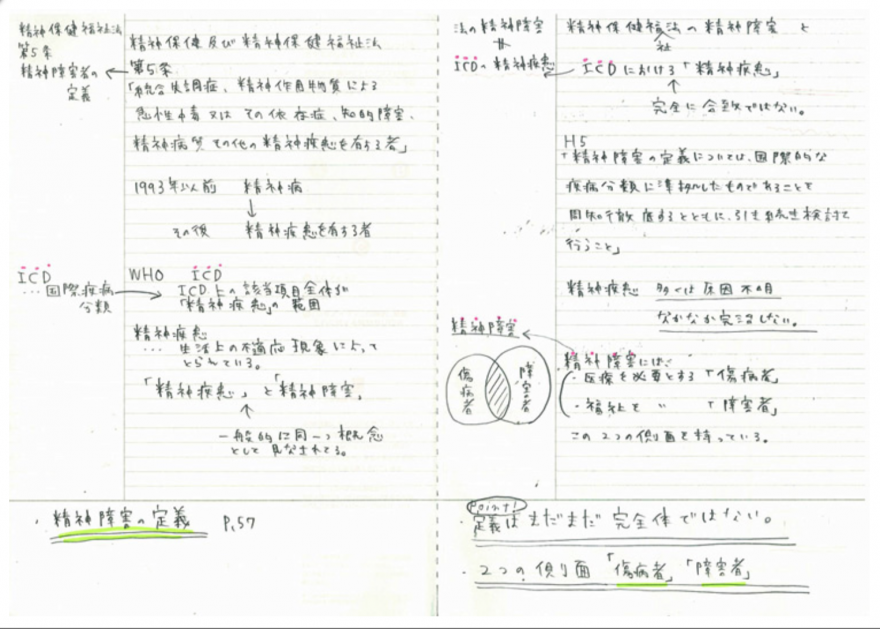 精神保健福祉法
第5条
精神障害者の
定義
精神保健及び精神保健福祉法
第5条
「統合失調症、精神作用物質による
急性中毒又はその依存症、知的障害、
精神病質その他の精神疾患を有する者」
1993年以前 精神病
↓
その後 精神疾患を有する者
ICD
…国際疾病
分類
WHO ICD
ICD上の該当項目全体が
「精神疾患」の範囲
精神疾患
… 生活上の不適応現象によって
とらんでいる。
「精神疾患」と「精神障害」
↑
一般的に同一つ概念
として見なされてる。
・精神障害の定義 P,57
法の精神障害
≠
ICDの精神疾患
精神保健福祉法の精神障害と
ICDにおける「精神疾患」
↑
完全に合致ではない。
H5
「精神障害の定義については、国際的な
疾病分類に準拠したものであることを
周知徹底するとともに、引き続き検討を
行うこと」
精神疾患 多くは原因不明
なかなか完治しない。
精神障害
傷病者
障害者
精神障害には、
・医療を必要とする「傷病者」
・福祉を 〃 「障害者」
この2つの側面を持っている。
Point!
・定義はまだまだ完全体ではない。
・2つの側面「傷病者」「障害者」